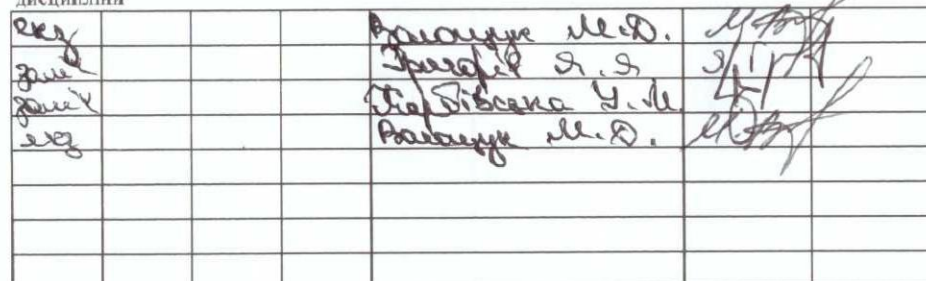 дисципліни
екз Волощук М.Д.
залік Григорів Я.Я
залік Карбівська У.М.
екз Волощук М.Д.